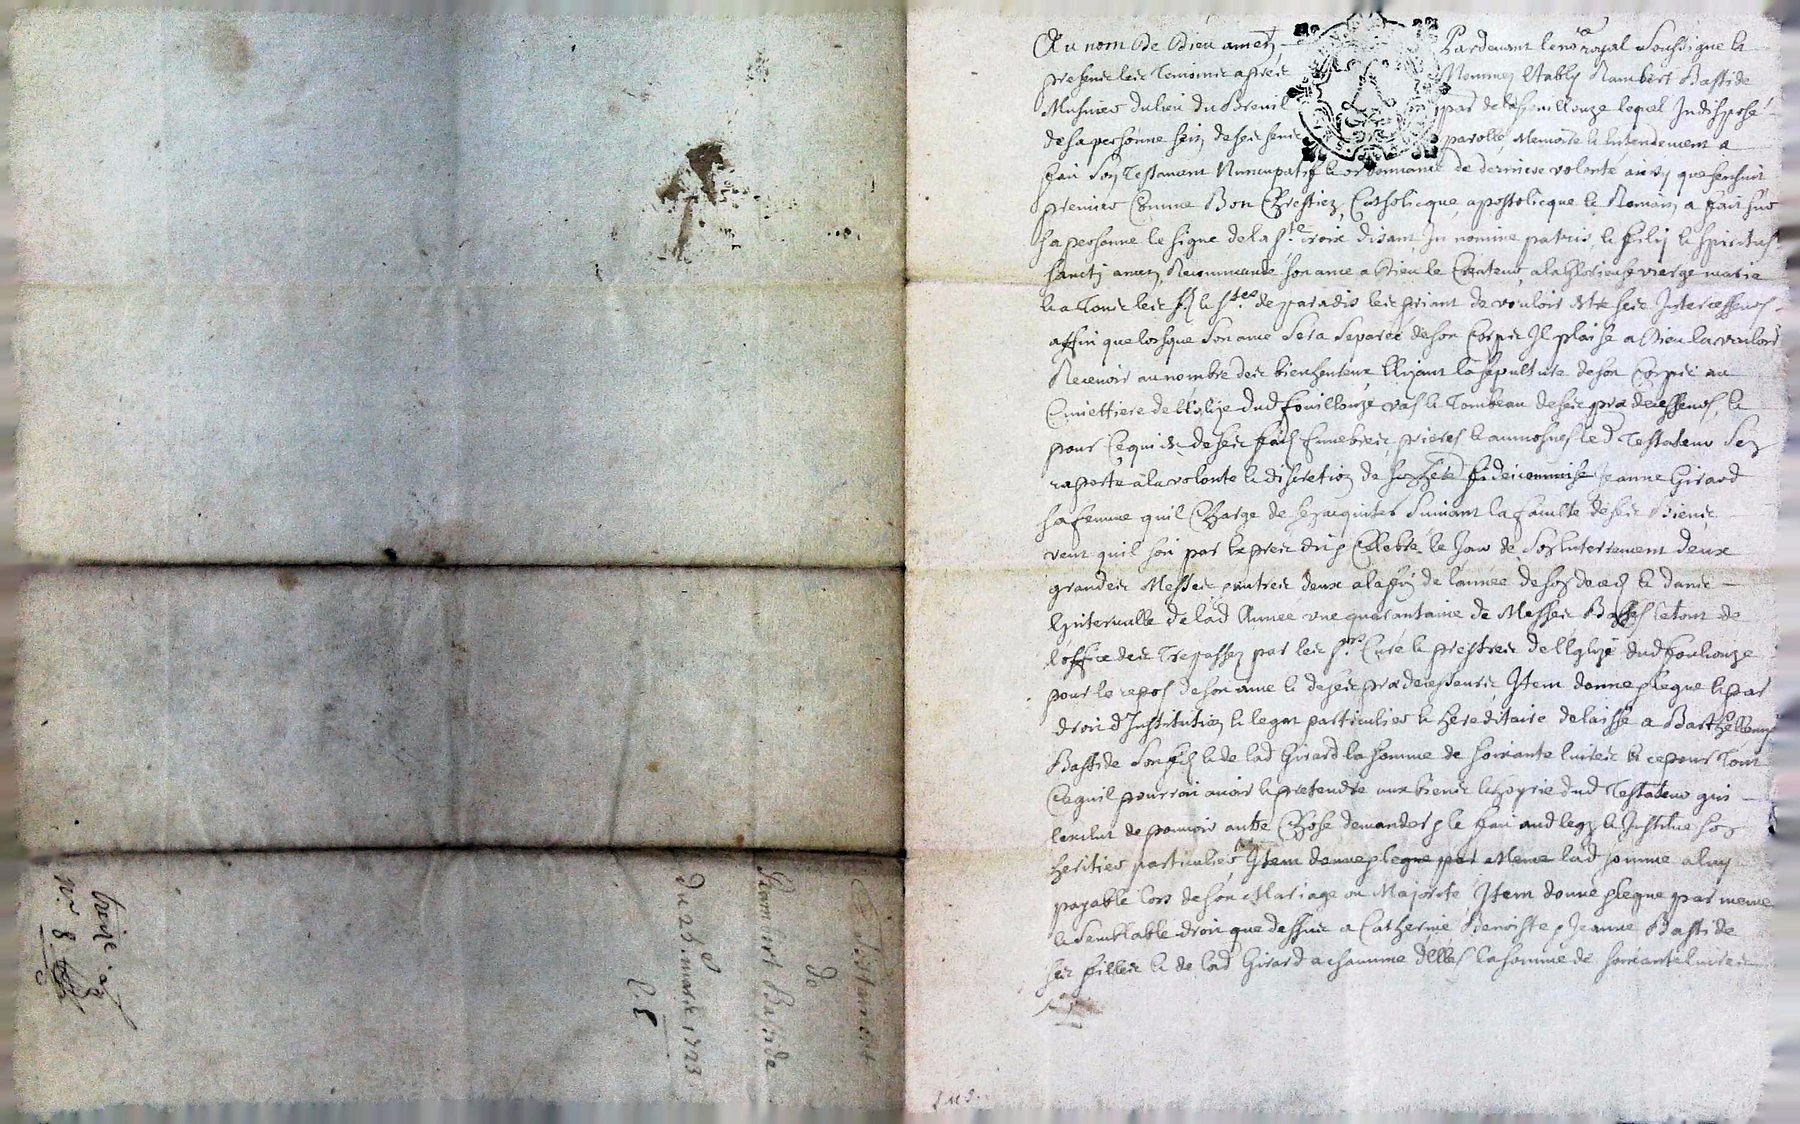 Au nom de Dieu amen Pardevant le no.re royal soussigne et
presentz les temoins apres Nommez estably Rambert Bastide
Musnier du lieu du Breuil par de de Fouillouze lequel Indispose
de sa personne sein de ses sens parolle, Memoire et entendement a
fait son Testament Nuncupatif et ordonnance de derniere volonte ainsy que sensuit
premier Comme Bon Chrestien, Catholicque, apostolicque et Romain a fait sur
sa personne le signe de la s.te croix disant In nomine patris et filij et spiritus
sancti amen, Recommande son ame a Dieu le Createur, a la Glorieuse vierge marie
et a Tous les s.ts et s.tes de paradis les priant de vouloir estre ses Intercesseurs
affin que lorsque son ame sera separee de son Corps Il plaise a Dieu la vouloir
Recevoir au nombre des bienheureux Elizant la sepulture de son Corps au
Cimettiere de l'eglize dud fouillouze vas et Tombeau de ses predecesseurs, et
pour Ce qui est de ses frais funebres, prieres et aumosnes led Testateur sen
raporte a la volonte et discretion de Jeanne Girard
sa femme quil Charge de sen acquiter suivant la faculte de ses Biens
veut quil soit par les prestres Celebre le Jour de son enterrement deux
grandes Messes, autres deux a la fin de l'annee de son deces et dans
l'intervalle de lad Annee une quarantaine de Messes Basses le tout de
l'office des Trepassez par les s.rs Cure et prestres de l'Eglize dud fouliouze
pour le repos de son ame et de ses predecesseurs, Item donne legue et par
droit d'Institution et legat particulier et hereditaire delaisse a Barthellemy
Bastide son fils et de lad Girard la somme de soixante livres et ce pour Tout
Ce quil pourroit avoir et pretendre aux biens et hoyrie dud Testateur qui
lexclut de pouvoir autre Chose demander le fait aud legz et Institue son
heritier particulier, Item donne legue par meme lad somme a luy
payable lors de son Mariage ou Majorite Item donne legue par meme
et semblable droit que dessus a Catherine Benoiste, Jeanne Bastide
ses filles et de lad Girard a chacune d'elles la somme de soixante livres
Testament
de
Rambert Bastide
du 25 mars 1723